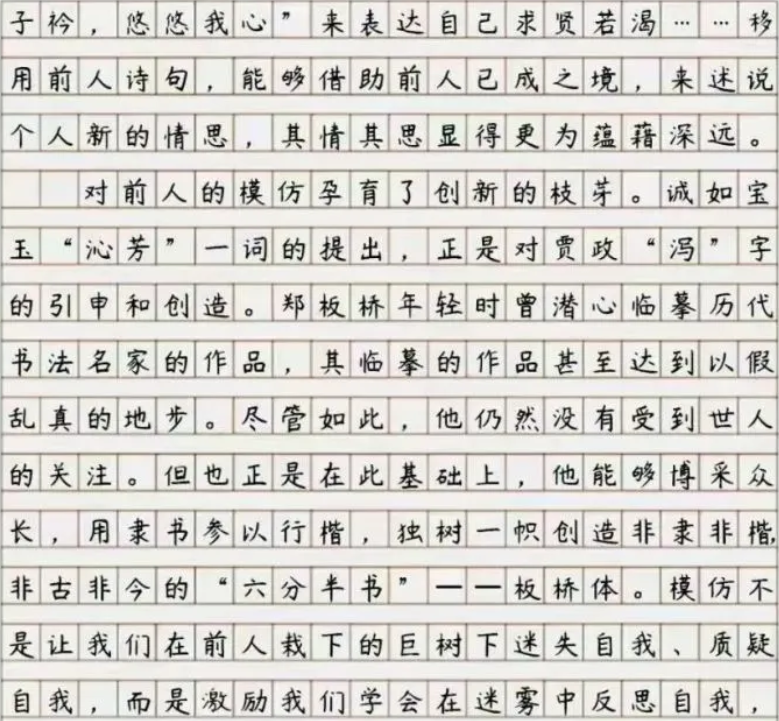 子衿，悠悠我心”来表达自己求贤若渴……移
用前人诗句，能够借助前人已成之境，来述说
个人新的情思，其情其思显得更为蕴藉深远。
对前人的模仿孕育了创新的枝芽。诚如宝
玉“沁芳”一词的提出，正是对贾政“泻”字
的引申和创造。郑板桥年轻时曾潜心临摹历代
书法名家的作品，其临摹的作品甚至达到以假
乱真的地步。尽管如此，他仍然没有受到世人
的关注。但也正是在此基础上，他能够博采众
长，用隶书参以行楷，独树一帜创造非隶非楷，
非古非今的“六分半书”——板桥体。模仿不
是让我们在前人栽下的巨树下迷失自我、质疑
自我，而是激励我们学会在迷雾中反思自我，